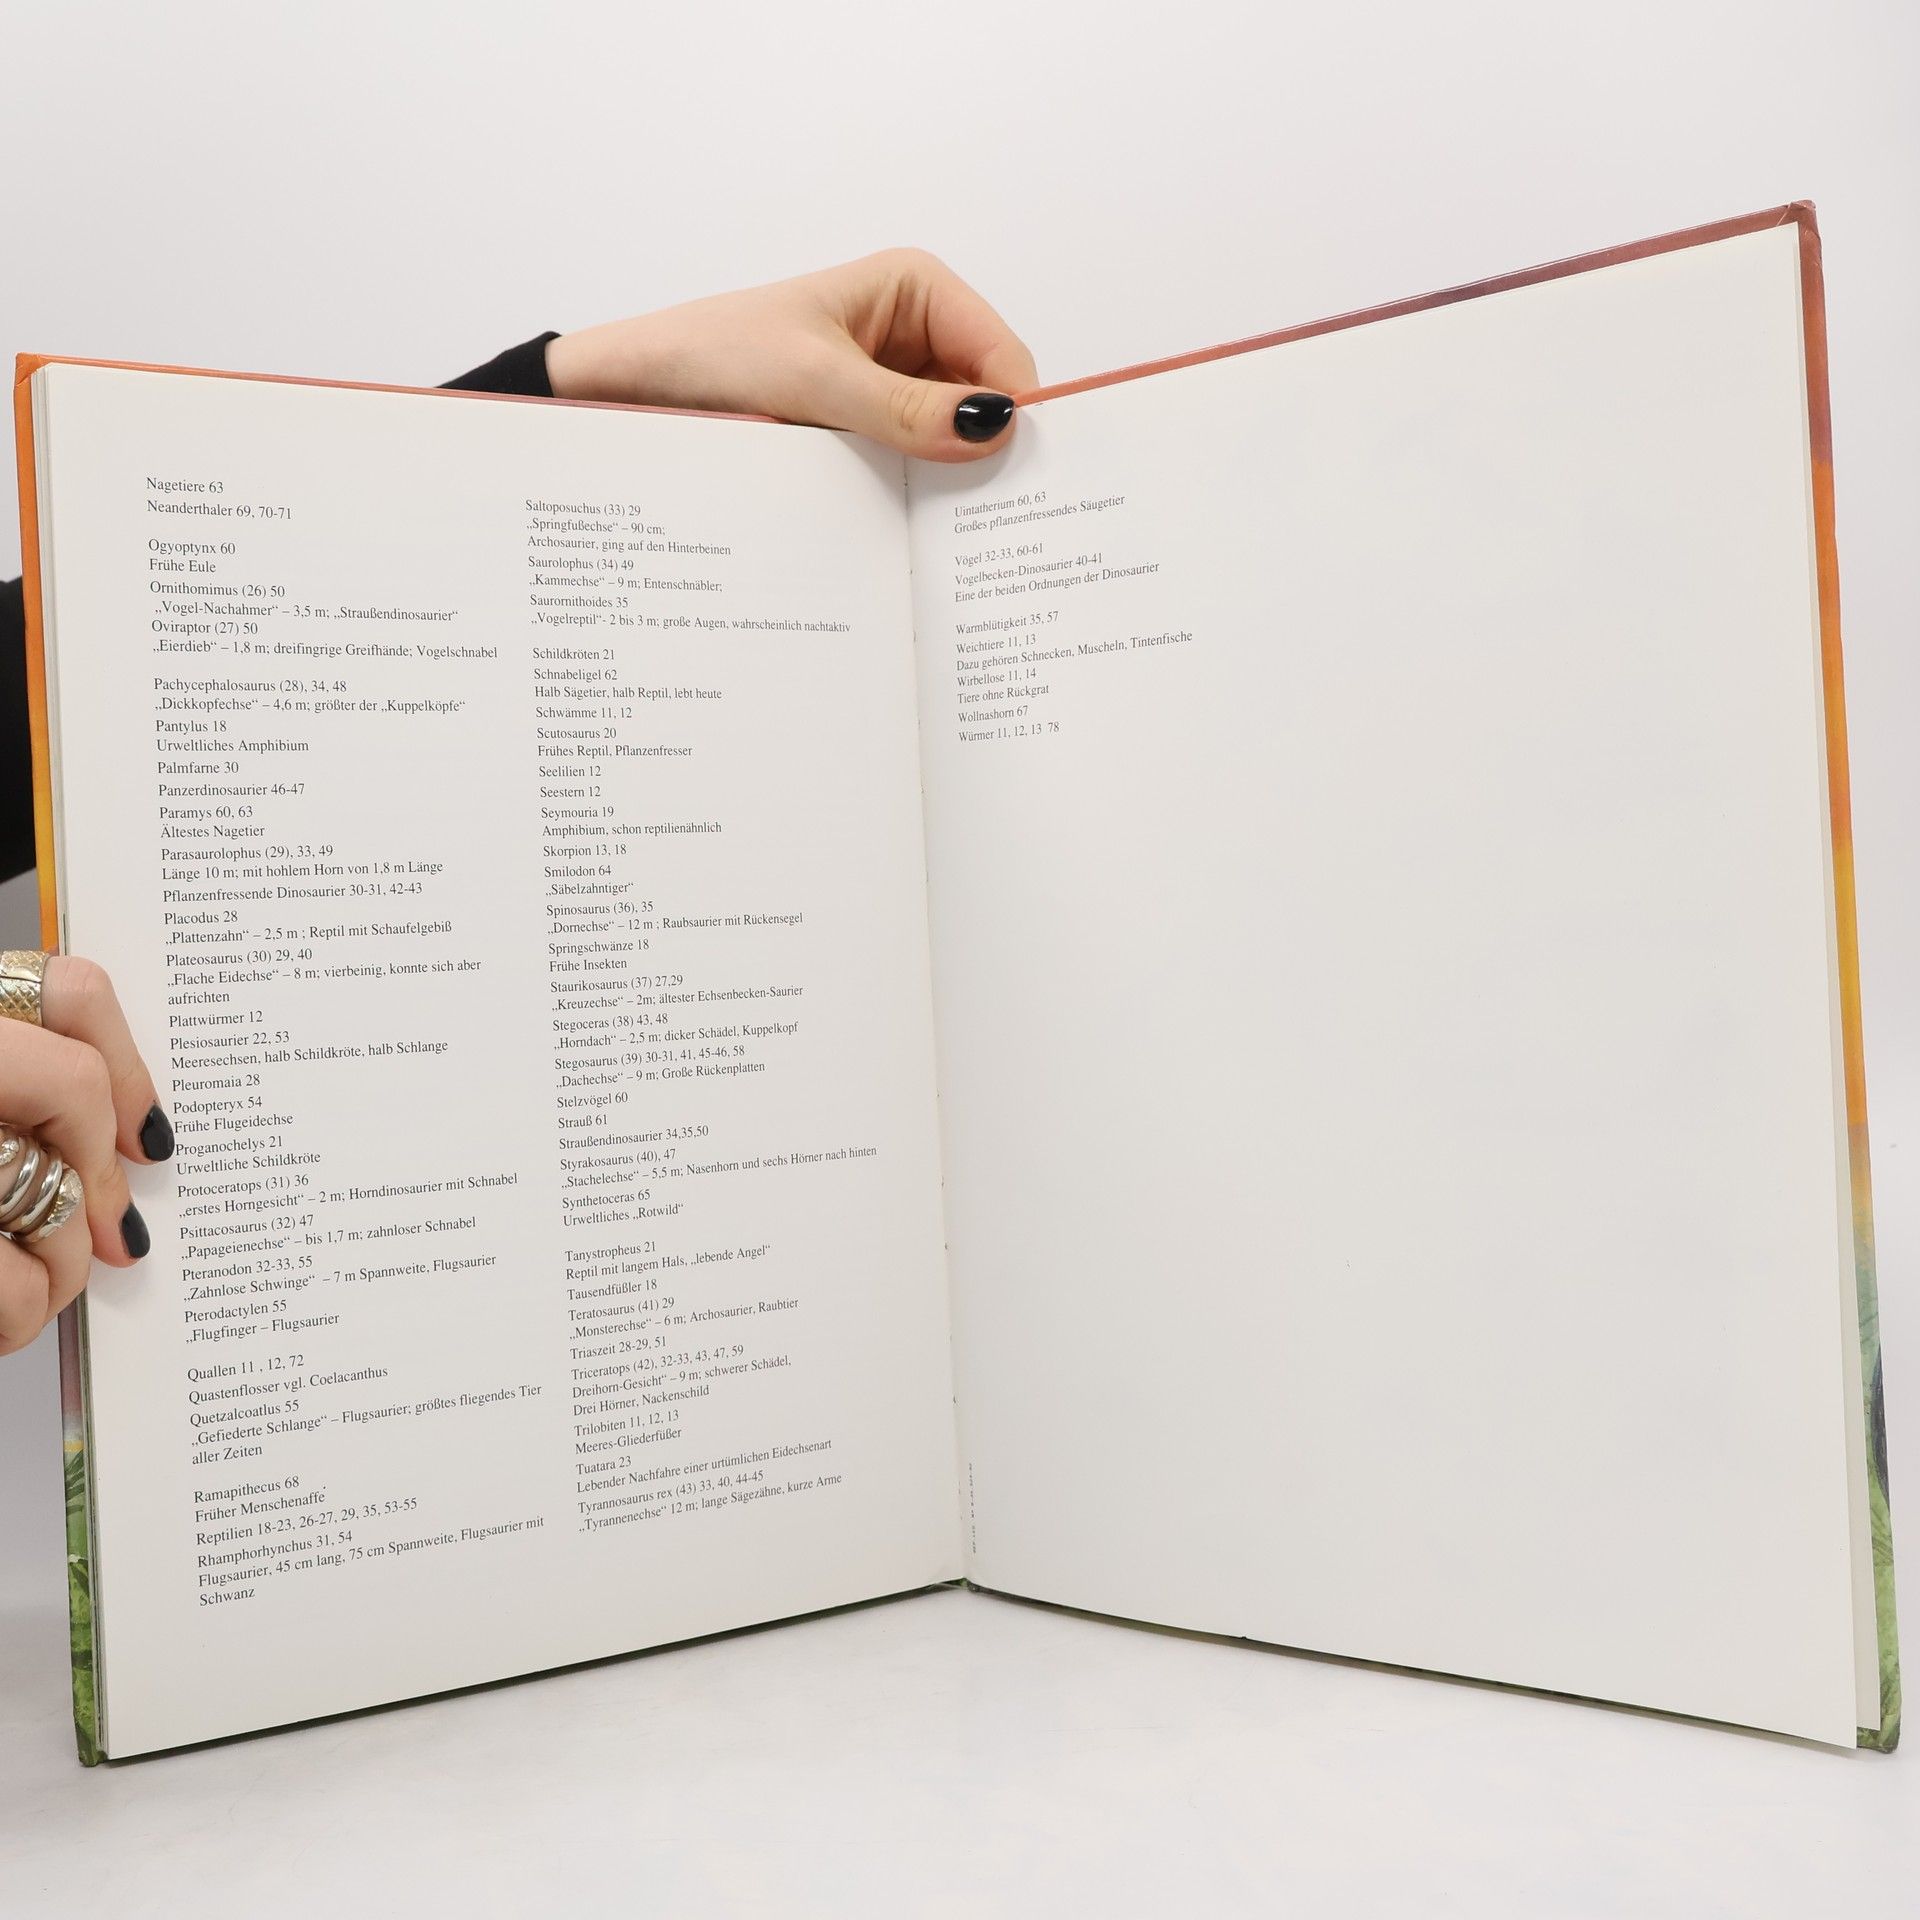 Nagetiere 63
Neanderthaler 69, 70-71
Ogyoptynx 60
Frühe Eule
Ornithomimus (26) 50
„Vogel-Nachahmer“ – 3,5 m; „Straußendinosaurier“
Oviraptor (27) 50
„Eierdieb“ – 1,8 m; dreifingrige Greifhände; Vogelschnabel
Pachycephalosaurus (28), 34, 48
„Dickkopfechse“ – 4,6 m; größter der „Kuppelköpfe“
Pantylus 18
Urweltliches Amphibium
Palmfarne 30
Panzerdinosaurier 46-47
Paramys 60, 63
Ältestes Nagetier
Parasaurolophus (29), 33, 49
Länge 10 m; mit hohlem Horn von 1,8 m Länge
Pflanzenfressende Dinosaurier 30-31, 42-43
Placodus 28
„Plattenzahn“ – 2,5 m ; Reptil mit Schaufelgebiß
Plateosaurus (30) 29, 40
„Flache Eidechse“ – 8 m; vierbeinig, konnte sich aber
aufrichten
Plattwürmer 12
Plesiosaurier 22, 53
Meeresechsen, halb Schildkröte, halb Schlange
Pleuromaia 28
Podopteryx 54
Frühe Flugeidechse
Proganochelys 21
Urweltliche Schildkröte
Protoceratops (31) 36
„erstes Horngesicht“ – 2 m; Horndinosaurier mit Schnabel
Psittacosaurus (32) 47
„Papageienechse“ – bis 1,7 m; zahnloser Schnabel
Pteranodon 32-33, 55
„Zahnlose Schwinge“ – 7 m Spannweite, Flugsaurier
Pterodactylen 55
„Flugfinger – Flugsaurier
Quallen 11 , 12, 72
Quastenflosser vgl. Coelacanthus
Quetzalcoatlus 55
„Gefiederte Schlange“ – Flugsaurier; größtes fliegendes Tier
aller Zeiten
Ramapithecus 68
Früher Menschenaffe
Reptilien 18-23, 26-27, 29, 35, 53-55
Rhamphorhynchus 31, 54
Flugsaurier, 45 cm lang, 75 cm Spannweite, Flugsaurier mit
Schwanz
Saltoposuchus (33) 29
„Springfußechse“ – 90 cm;
Archosaurier, ging auf den Hinterbeinen
Saurolophus (34) 49
„Kammechse“ – 9 m; Entenschnäbler;
Saurornithoides 35
„Vogelreptil“- 2 bis 3 m; große Augen, wahrscheinlich nachtaktiv
Schildkröten 21
Schnabeligel 62
Halb Sägetier, halb Reptil, lebt heute
Schwämme 11, 12
Scutosaurus 20
Frühes Reptil, Pflanzenfresser
Seelilien 12
Seestern 12
Seymouria 19
Amphibium, schon reptilienähnlich
Skorpion 13, 18
Smilodon 64
„Säbelzahntiger“
Spinosaurus (36), 35
„Dornechse“ – 12 m ; Raubsaurier mit Rückensegel
Springschwänze 18
Frühe Insekten
Staurikosaurus (37) 27,29
„Kreuzechse“ – 2m; ältester Echsenbecken-Saurier
Stegoceras (38) 43, 48
„Horndach“ – 2,5 m; dicker Schädel, Kuppelkopf
Stegosaurus (39) 30-31, 41, 45-46, 58
„Dachechse“ – 9 m; Große Rückenplatten
Stelzvögel 60
Strauß 61
Straußendinosaurier 34,35,50
Styrakosaurus (40), 47
„Stachelechse“ – 5,5 m; Nasenhorn und sechs Hörner nach hinten
Synthetoceras 65
Urweltliches „Rotwild“
Tanystropheus 21
Reptil mit langem Hals, „lebende Angel“
Tausendfüßler 18
Teratosaurus (41) 29
„Monsterechse“ – 6 m; Archosaurier, Raubtier
Triaszeit 28-29, 51
Triceratops (42), 32-33, 43, 47, 59
Dreihorn-Gesicht“ – 9 m; schwerer Schädel,
Drei Hörner, Nackenschild
Trilobiten 11, 12, 13
Meeres-Gliederfüßer
Tuatara 23
Lebender Nachfahre einer urtümlichen Eidechsenart
Tyrannosaurus rex (43) 33, 40, 44-45
„Tyrannenechse“ 12 m; lange Sägezähne, kurze Arme
Uintatherium 60, 63
Großes pflanzenfressendes Säugetier
Vögel 32-33, 60-61
Vogelbecken-Dinosaurier 40-41
Eine der beiden Ordnungen der Dinosaurier
Warmblütigkeit 35, 57
Weichtiere 11, 13
Dazu gehören Schnecken, Muscheln, Tintenfische
Wirbellose 11, 14
Tiere ohne Rückgrat
Wollnashorn 67
Würmer 11, 12, 13 78